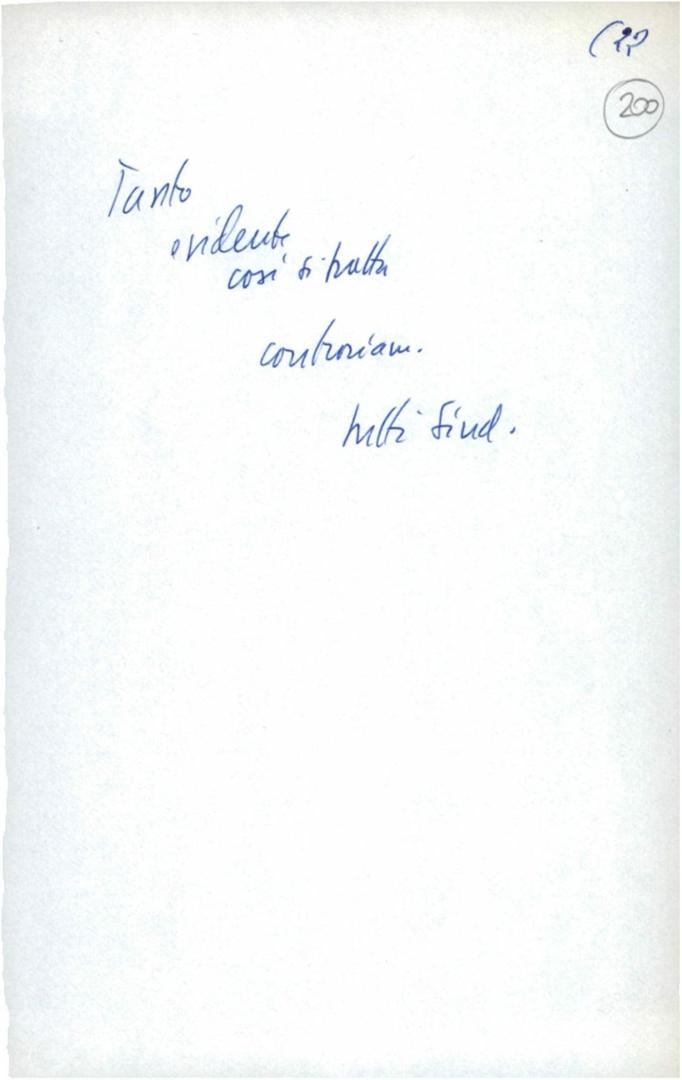 200
Tanto
evidente
così si tratta
tutti Sind.